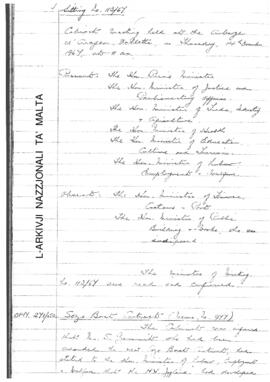 Sitting No. 113/67
Cabinet meeting held at the Auberge
d'Aragon, Valletta, on Thursday,
1967, at
Present: The Hon. Prime Minister
The Hon. Minister of Justice and
Parliamentary Affairs
The Hon. Minister of Trade, Industry
& Agriculture
The Hon. Minister of Health
The Hon. Minister of Education,
Culture and Tourism
The Hon. Minister of Labour
Employment & Welfare
Absent: The Hon. Minister of Finance,
Customs & Port
The Hon. Minister of Public
Building & Works, who was
indisposed
The minutes of Meeting
No. 112/67 were read and confirmed.
Gozo Boat Contract
The Cabinet was informed
that Mr. who had been
awarded the new Gozo Boat contract, had
stated to the Hon. Minister of Labour, Employment
& Welfare that the M.V. had developed
L-ARKIVJI NAZZJONALI TA' MALTA